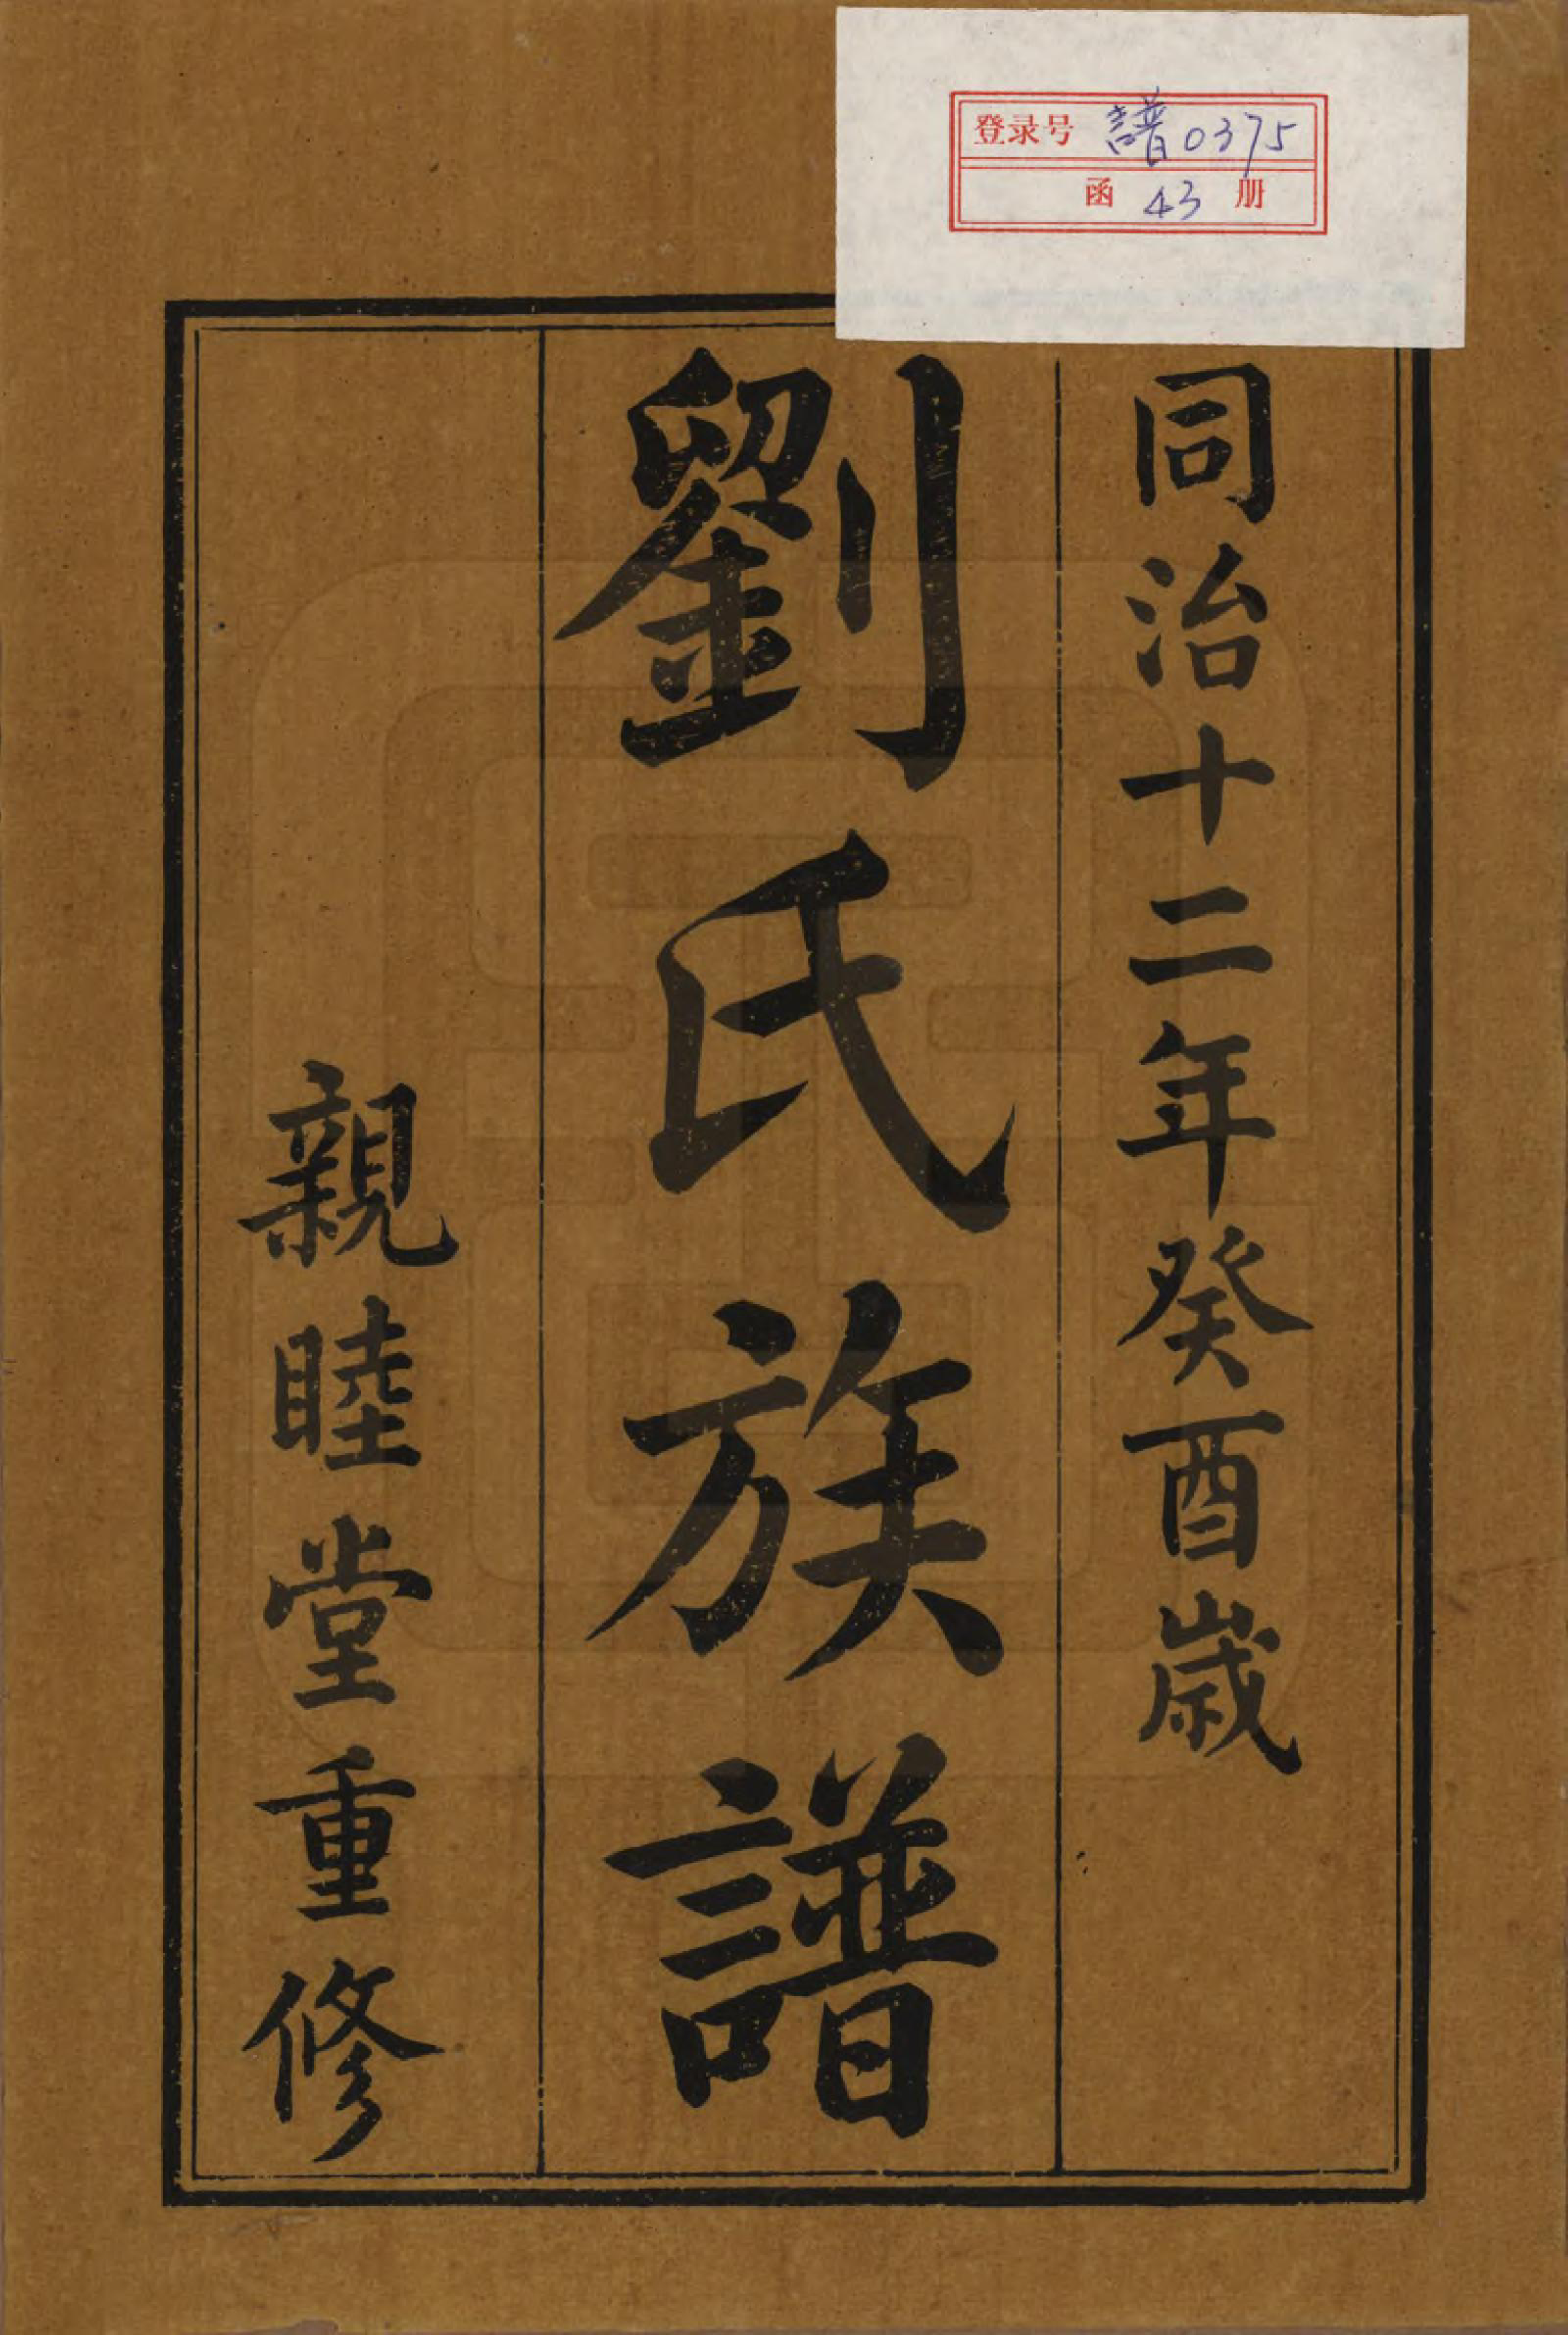 登录号 譜0375
函 43 册
同治十二年癸酉歲
劉氏族譜
親睦堂重修